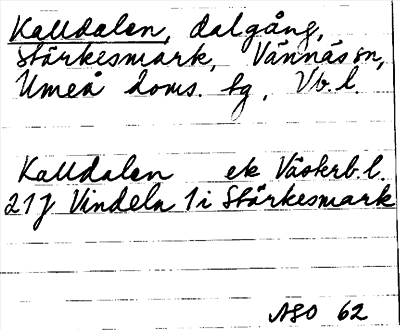 Kalldalen, dalgång,
Stärkesmark, Vännäs sn,
Umeå doms. tg, Vb. l.
Kalldalen ek Västerb. l.
21 J Vindeln 1 i Stärkesmark
ASO 62